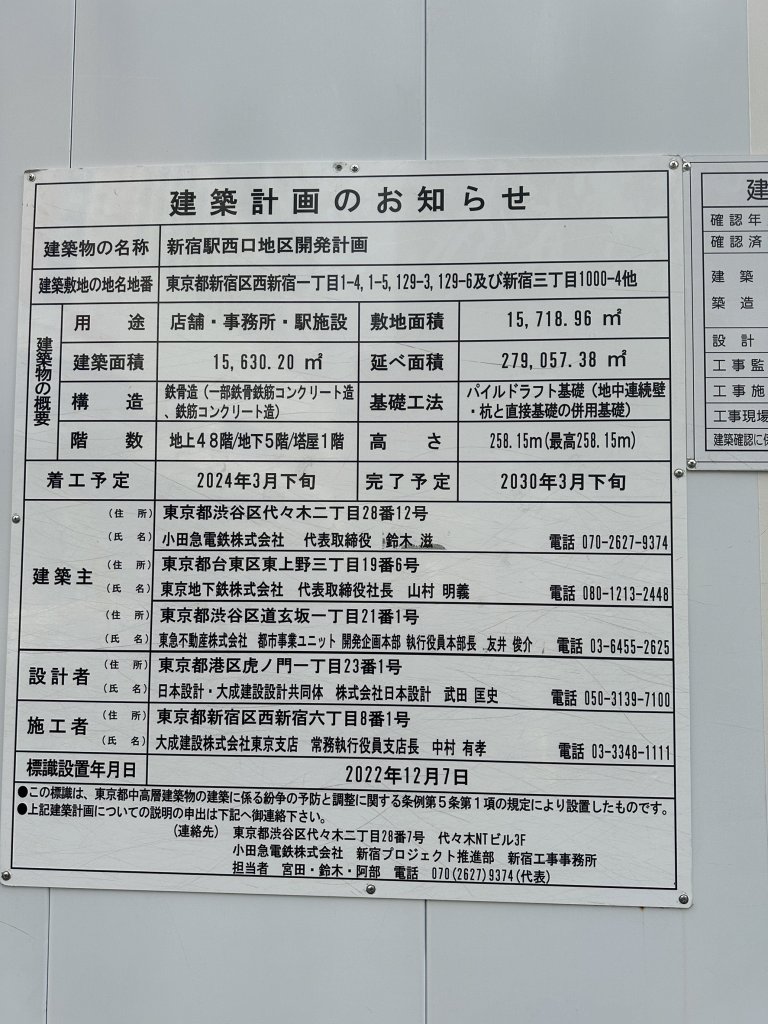 建築計画のお知らせ
建築物の名称 新宿駅西口地区開発計画
建築敷地の地名地番 東京都新宿区西新宿一丁目1-4, 1-5, 129-3, 129-6及び新宿三丁目1000-4他
建築物の概要
用途 店舗・事務所・駅施設 敷地面積 15,718.96 ㎡
建築面積 15,630.20 ㎡ 延べ面積 279,057.38 ㎡
構造 鉄骨造(一部鉄骨鉄筋コンクリート造
、鉄筋コンクリート造)
基礎工法 パイルドラフト基礎(地中連続壁
・杭と直接基礎の併用基礎)
階数 地上48階/地下5階/塔屋1階 高さ 258.15m(最高258.15m)
着工予定 2024年3月下旬 完了予定 2030年3月下旬
建築主
(住所) 東京都渋谷区代々木二丁目28番12号
(氏名) 小田急電鉄株式会社 代表取締役 鈴木 滋 電話 070-2627-9374
(住所) 東京都台東区東上野三丁目19番6号
(氏名) 東京地下鉄株式会社 代表取締役社長 山村 明義 電話 080-1213-2448
(住所) 東京都渋谷区道玄坂一丁目21番1号
(氏名) 東急不動産株式会社 都市事業ユニット 開発企画本部 執行役員本部長 友井 俊介 電話 03-6455-2625
設計者
(住所) 東京都港区虎ノ門一丁目23番1号
(氏名) 日本設計・大成建設設計共同体 株式会社日本設計 武田 匡史 電話 050-3139-7100
施工者
(住所) 東京都新宿区西新宿六丁目8番1号
(氏名) 大成建設株式会社東京支店 常務執行役員支店長 中村 有孝 電話 03-3348-1111
標識設置年月日 2022年12月7日
●この標識は、東京都中高層建築物の建築に係る紛争の予防と調整に関する条例第5条第1項の規定により設置したものです。
●上記建築計画についての説明の申出は下記へ御連絡下さい。
(連絡先) 東京都渋谷区代々木二丁目28番7号 代々木NTビル3F
小田急電鉄株式会社 新宿プロジェクト推進部 新宿工事事務所
担当者 宮田・鈴木・阿部 電話 070(2627)9374(代表)
建
確認年
確認済
建築
築造
設計
工事監
工事施
工事現場
建築確認に係